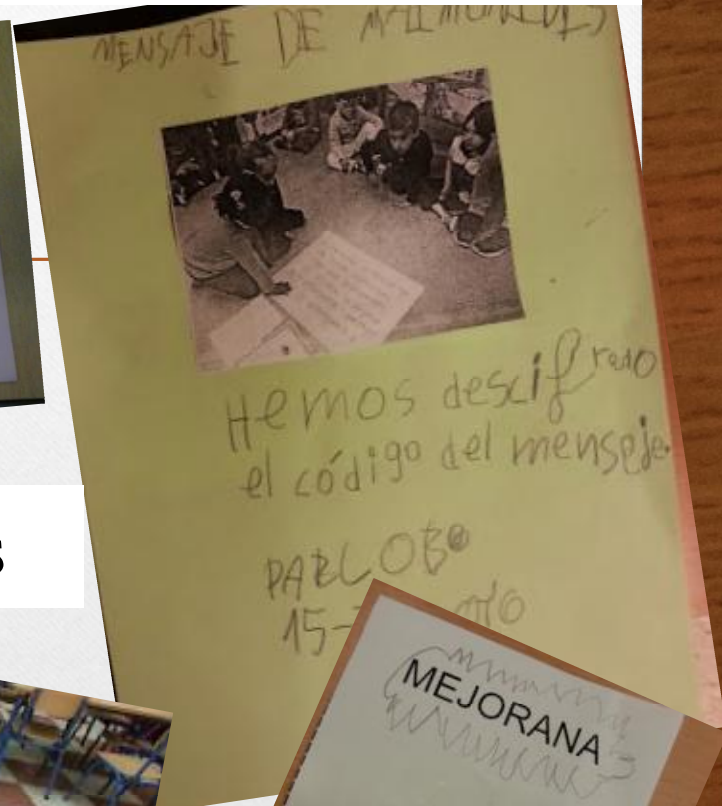 MENSAJE DE MAIMONIDES
Hemos descifrado
el código del menseje.
PABLO
15-
S
MEJORANA